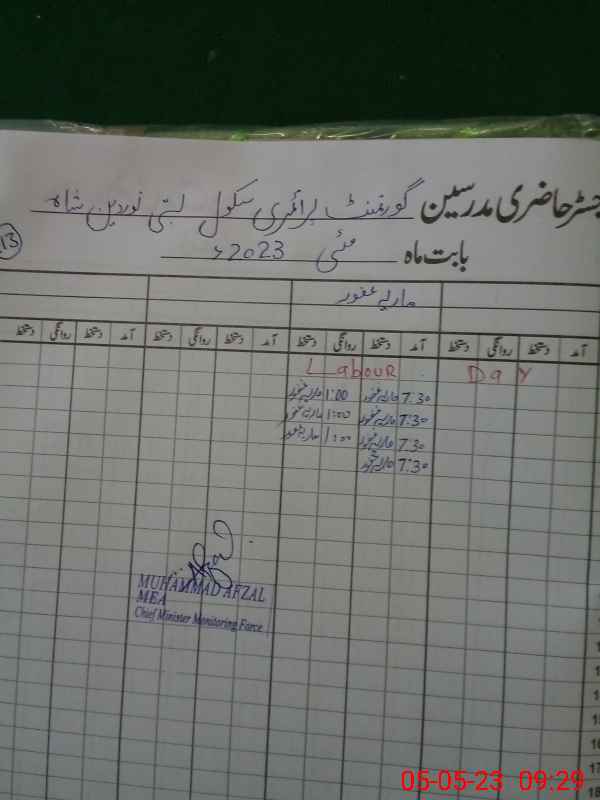 جسٹر حاضری مدرسین گورنمنٹ پرائمری سکول بستی نوردین شاہ
بابت ماہ مئی 2023ء
13
ماریہ غفور
آمد دستخط روانگی دستخط آمد دستخط روانگی دستخط آمد دستخط روانگی دستخط آمد دستخط روانگی دستخط
Labour Day
7:30 ماریہ غفور 1:00 ماریہ غفور
7:30 ماریہ غفور 1:00 ماریہ غفور
7:30 ماریہ غفور 1:00 ماریہ غفور
7:30 ماریہ غفور
Afzal
MUHAMMAD AFZAL
MEA
Chief Minister Monitoring Force
15
16
17
18
05-05-23 09:29